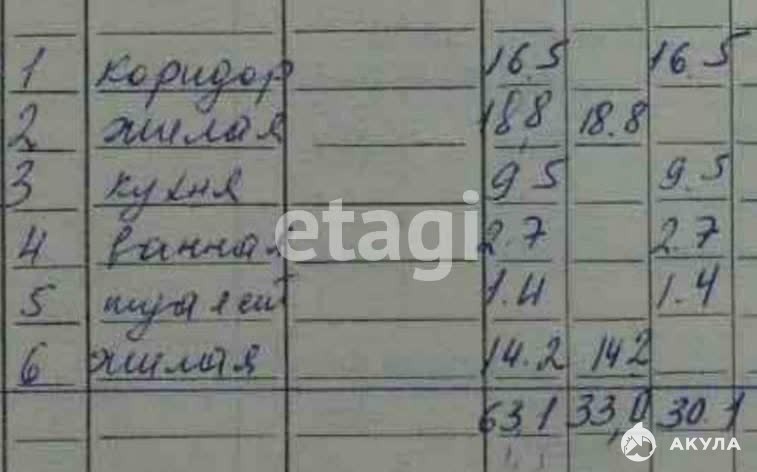 1 коридор 16.5 16.5
2 жилая 18,8 18.8
3 кухня 9 5 9.5
4 ванная 2.7 2.7
5 туалет 1.4 1.4
6 жилая 14.2 142
63,1 33,0 30.1
etagi
АКУЛА